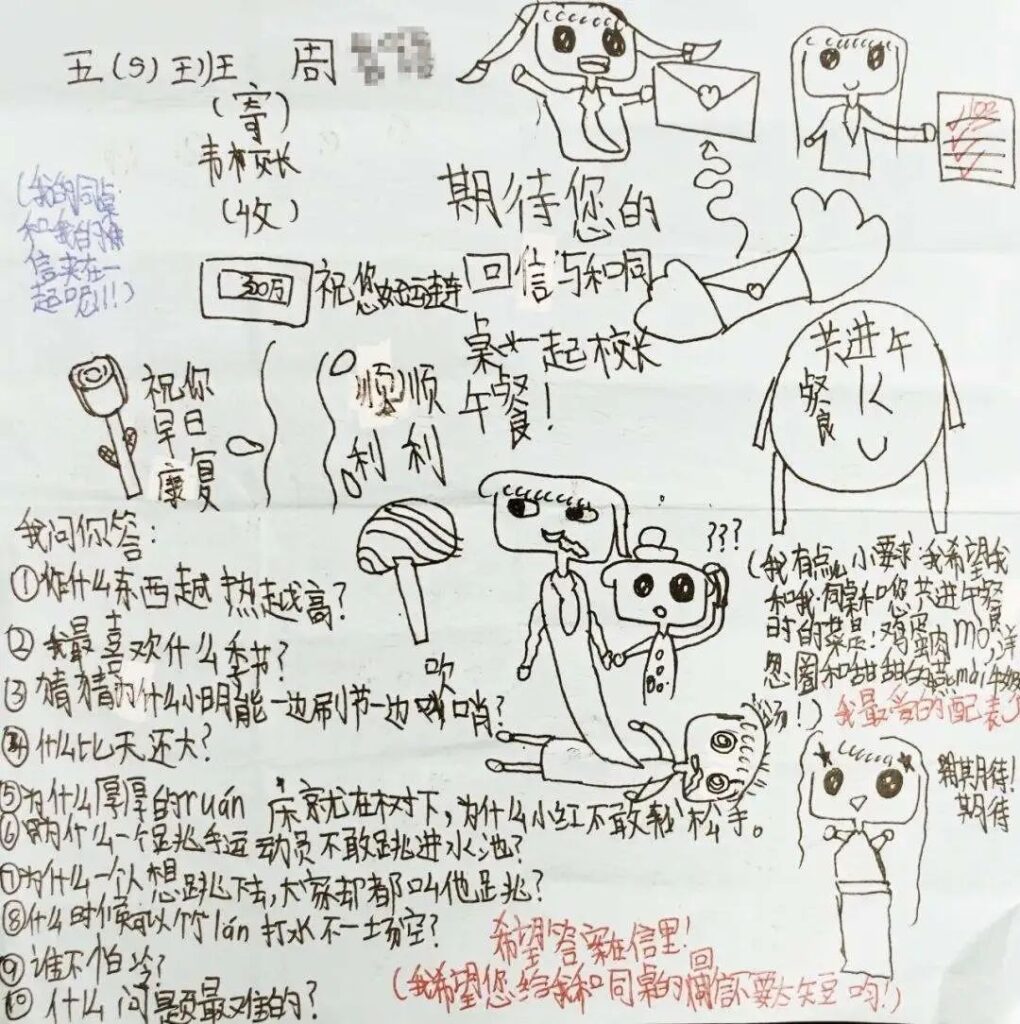 五(5)班 周
(寄)
韦校长
(收)
(我的同桌
和我的
信夹在一
起呢!!!)
祝您好运连连
祝你
早日
康复
顺顺
利利
期待您的
回信与和同
桌一起校长
午餐!
共进午
餐
我问你答:
①什么东西越热越高?
②我最喜欢什么季节?
③猜猜为什么小明能一边刷牙一边吹哨?
④什么比天还大?
⑤为什么厚厚的ruán床就在树下,为什么小红不敢松手。
⑥为什么一个跳水运动员不敢跳进水池?
⑦为什么一个人想跳下去,大家却都叫他跳?
⑧什么时候可以竹lán打水不一场空?
⑨谁不怕冷?
⑩什么问题最难的?
???
(我有点小要求:我希望我
和我同桌和您共进午餐
时的菜是:鸡蛋肉mó,洋
忽圈和甜甜 mài牛奶
汤!)
我最爱的配表了
期待!
期待
希望答案在信里!
(我希望您给我和同桌的回信不要太短哟!)